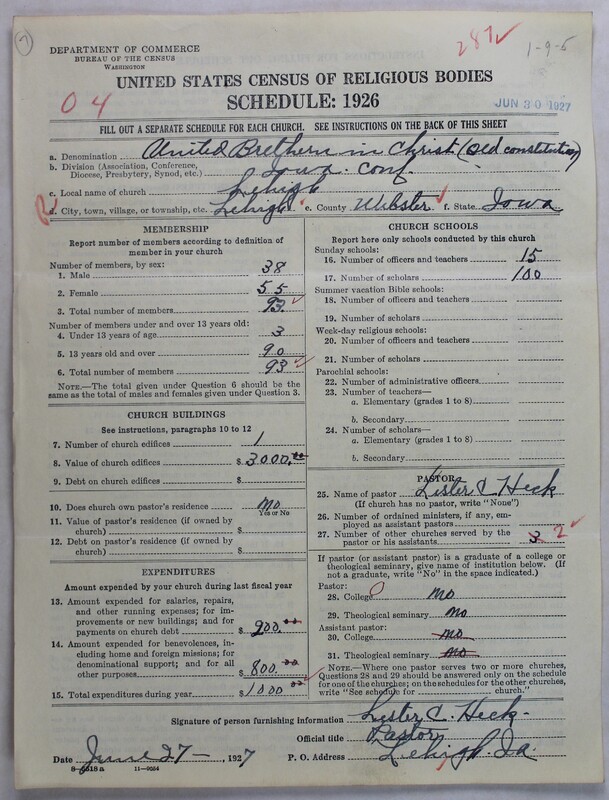 7
DEPARTMENT OF COMMERCE
BUREAU OF THE CENSUS
WASHINGTON
287 ✓
1-9-5
UNITED STATES CENSUS OF RELIGIOUS BODIES
SCHEDULE: 1926
04
JUN 30 1927
FILL OUT A SEPARATE SCHEDULE FOR EACH CHURCH. SEE INSTRUCTIONS ON THE BACK OF THIS SHEET
a. Denomination United Brethern in Christ (Old constitution)
b. Division (Association, Conference, Diocese, Presbytery, Synod, etc.) Iowa. Conf.
c. Local name of church Lehigh
d. City, town, village, or township, etc. Lehigh e. County Webster f. State Iowa
MEMBERSHIP
Report number of members according to definition of member in your church
Number of members, by sex:
1. Male 38
2. Female 55
3. Total number of members 93. ✓
Number of members under and over 13 years old:
4. Under 13 years of age 3
5. 13 years old and over 90
6. Total number of members 93 ✓
NOTE.—The total given under Question 6 should be the same as the total of males and females given under Question 3.
CHURCH BUILDINGS
See instructions, paragraphs 10 to 12
7. Number of church edifices 1
8. Value of church edifices $ 3000.00
9. Debt on church edifices $
10. Does church own pastor's residence no
Yes or No
11. Value of pastor's residence (if owned by church) $
12. Debt on pastor's residence (if owned by church) $
EXPENDITURES
Amount expended by your church during last fiscal year
13. Amount expended for salaries, repairs, and other running expenses; for improvements or new buildings; and for payments on church debt $ 200.00
14. Amount expended for benevolences, including home and foreign missions; for denominational support; and for all other purposes $ 800.00
15. Total expenditures during year $ 1000 00 ✓
CHURCH SCHOOLS
Report here only schools conducted by this church
Sunday schools:
16. Number of officers and teachers 15
17. Number of scholars 100
Summer vacation Bible schools:
18. Number of officers and teachers
19. Number of scholars
Week-day religious schools:
20. Number of officers and teachers
21. Number of scholars
Parochial schools:
22. Number of administrative officers
23. Number of teachers—
a. Elementary (grades 1 to 8)
b. Secondary
24. Number of scholars—
a. Elementary (grades 1 to 8)
b. Secondary
PASTOR
25. Name of pastor Lister C Heck
(If church has no pastor, write "None")
26. Number of ordained ministers, if any, employed as assistant pastors
27. Number of other churches served by the pastor or his assistants 3 2 ✓
If pastor (or assistant pastor) is a graduate of a college or theological seminary, give name of institution below. (If not a graduate, write "No" in the space indicated.)
Pastor:
28. College 0 no
29. Theological seminary no
Assistant pastor:
30. College no
31. Theological seminary no
NOTE.—Where one pastor serves two or more churches, Questions 28 and 29 should be answered only on the schedule for one of the churches; on the schedules for the other churches, write "See schedule for church."
Signature of person furnishing information Lister C. Heck
Official title Pastor
Date June 27 -, 1927 P. O. Address Lehigh. Ia.
8-5518a 11-9054